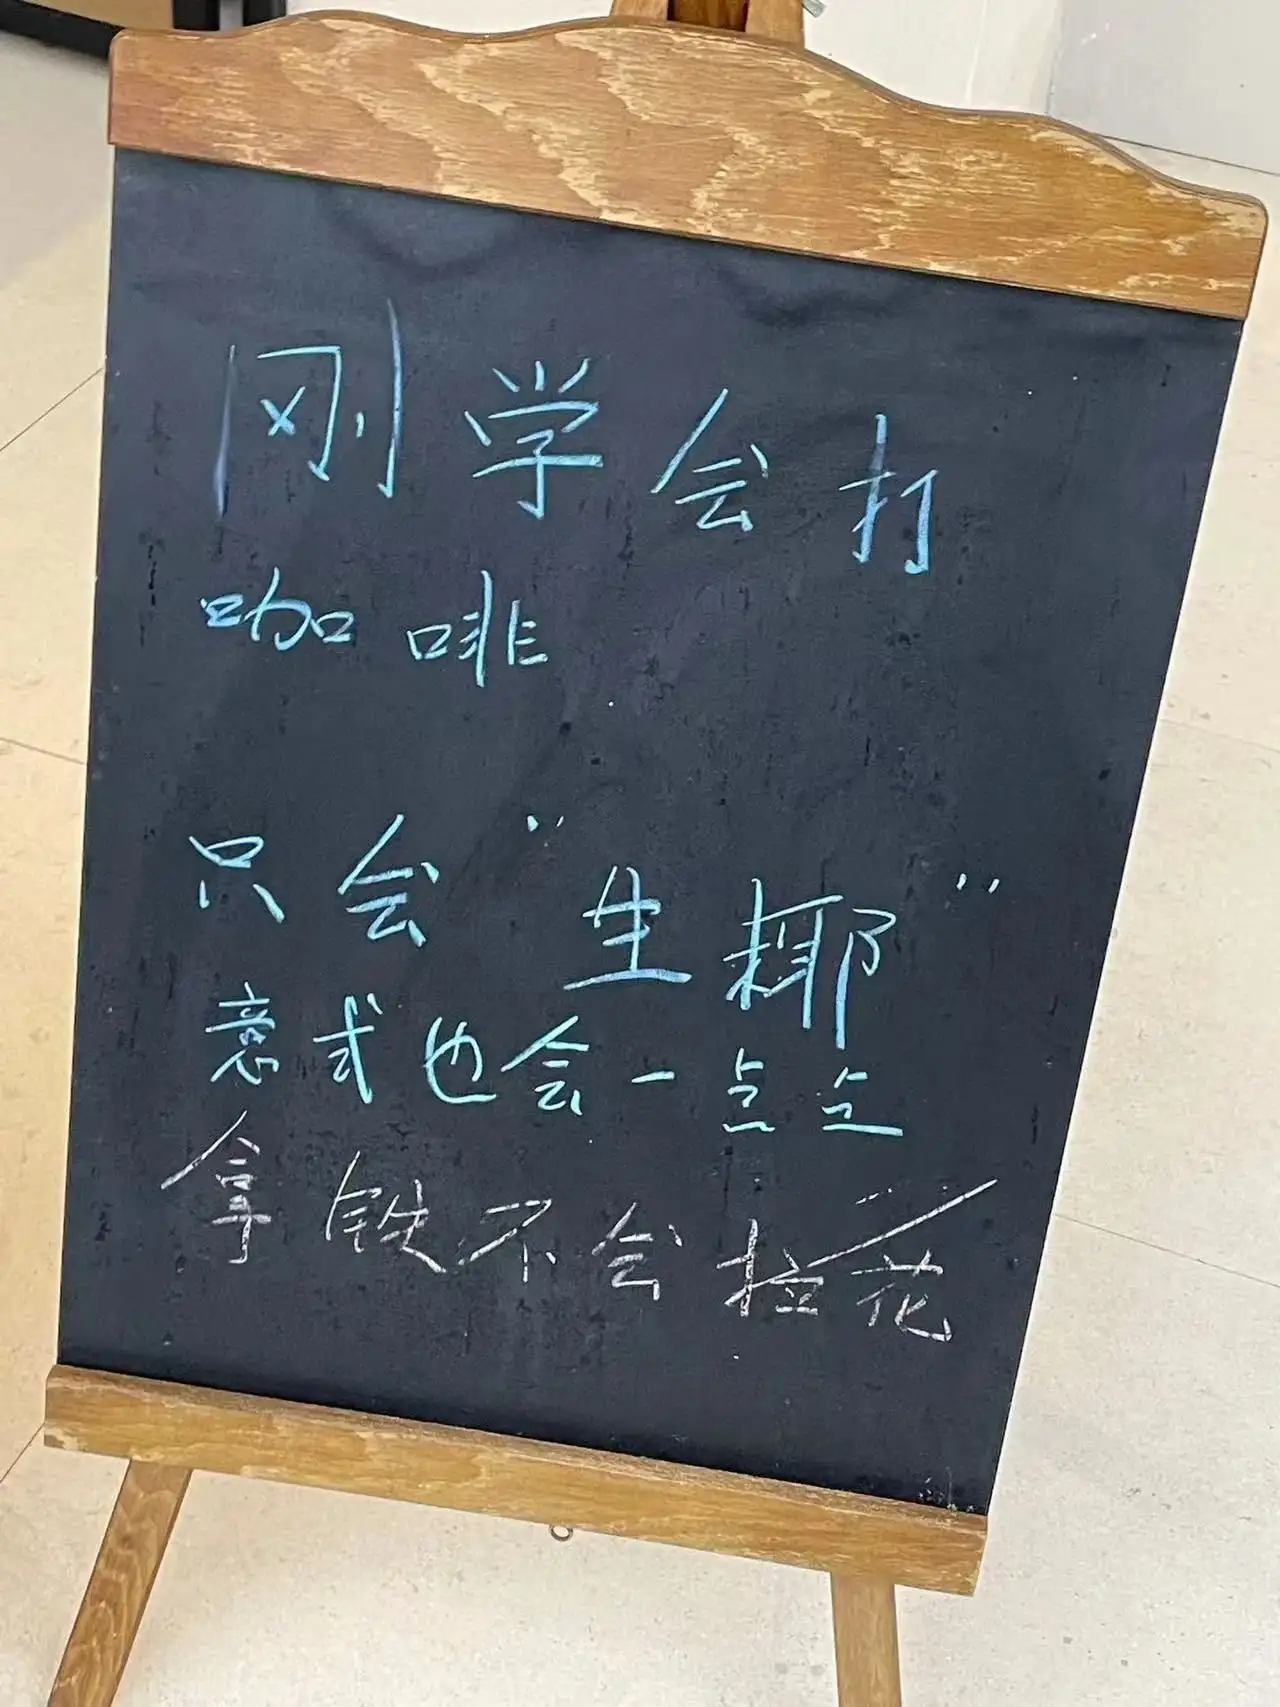 刚学会打
咖啡
只会"生椰"
意式也会一点点
拿铁不会拉花